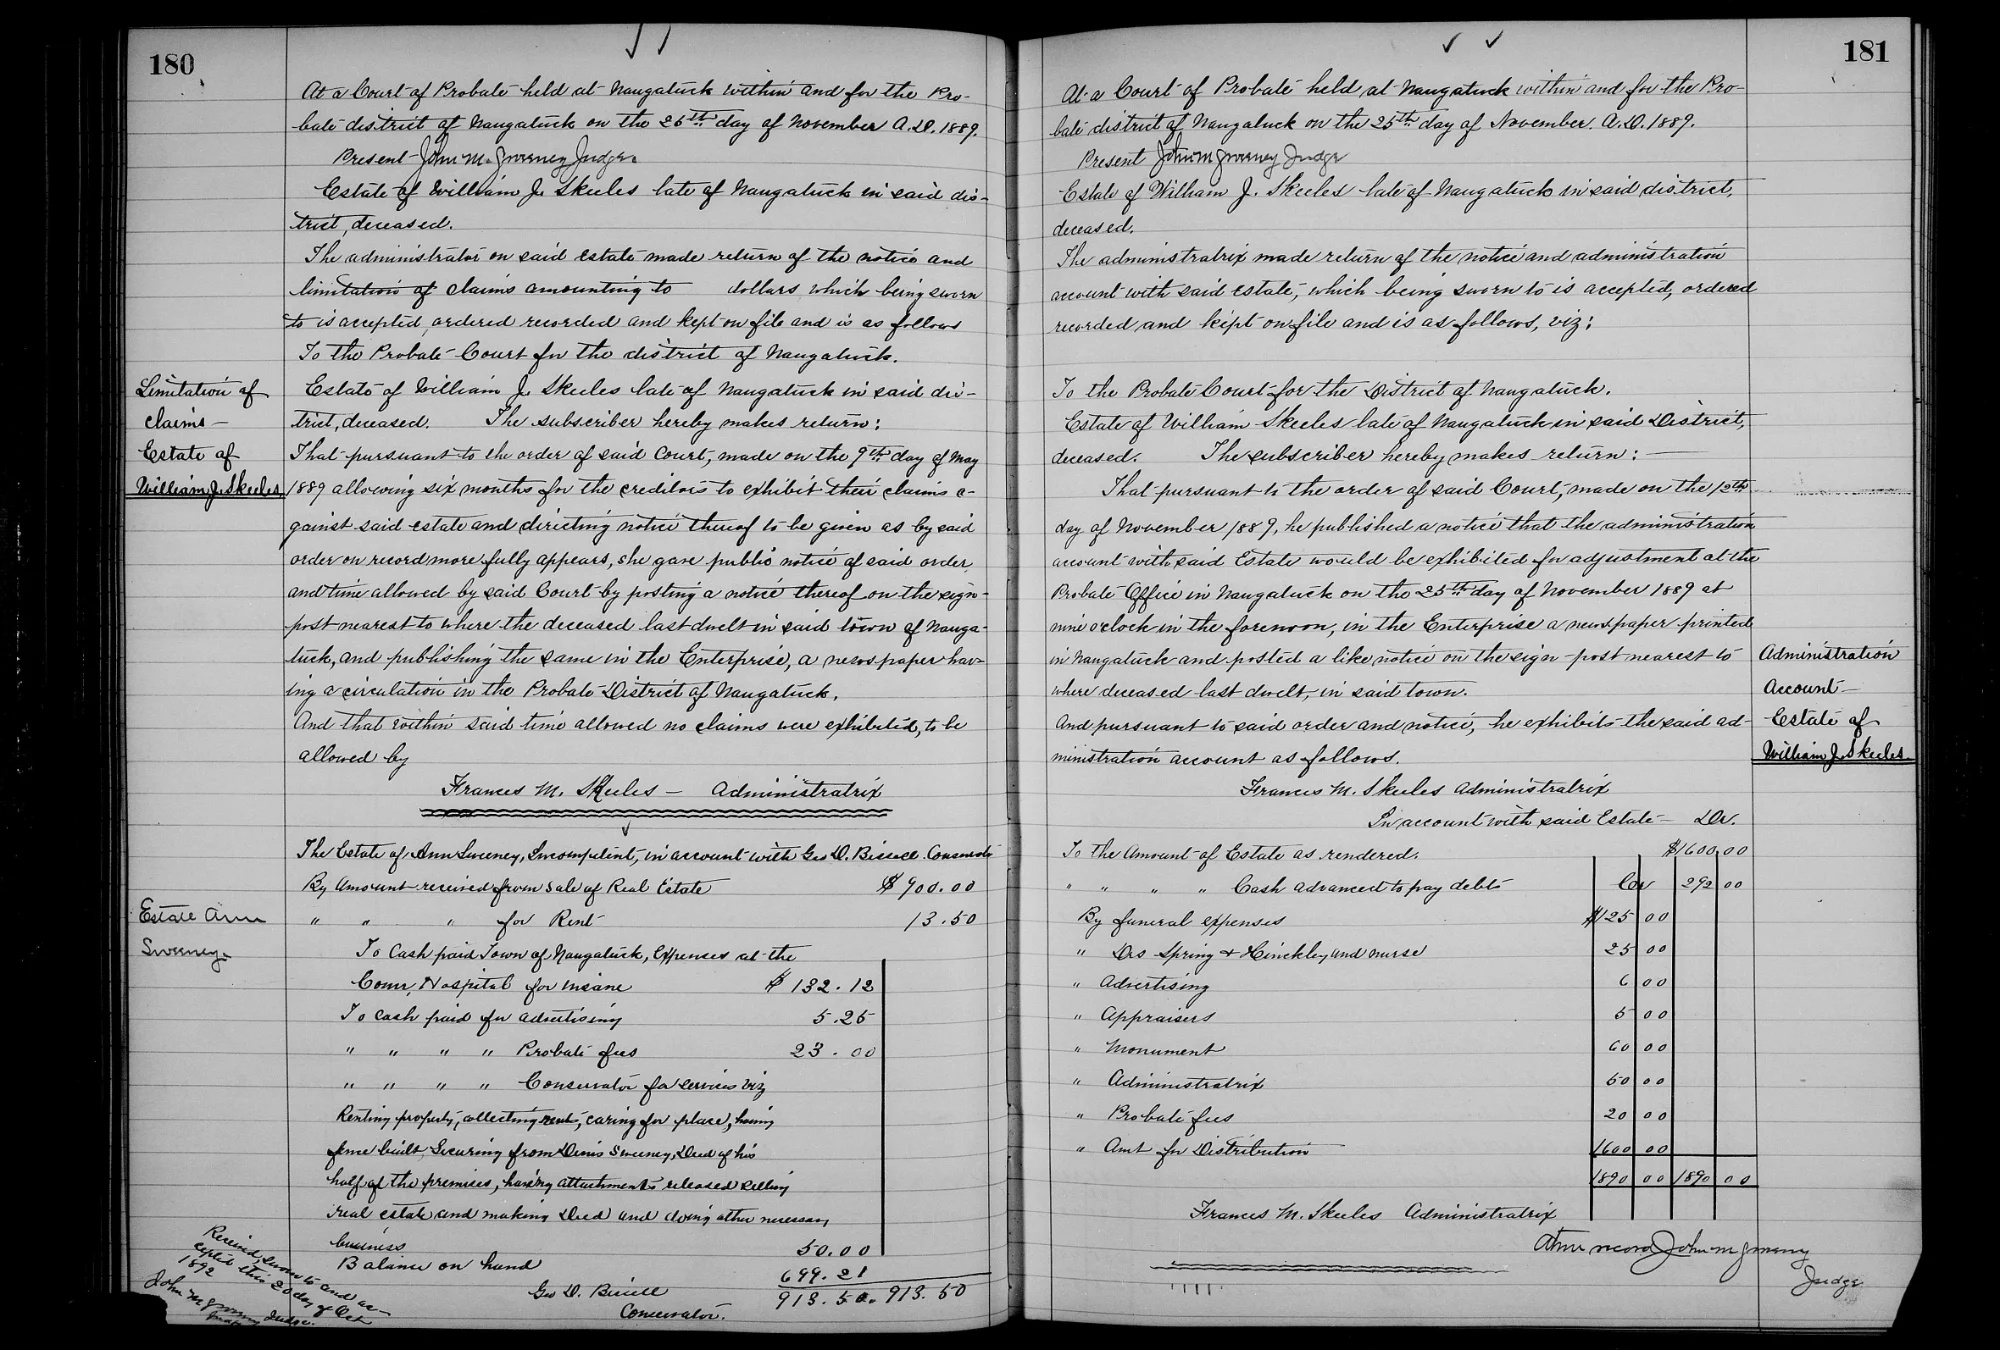 180
At a Court of Probate held at Naugatuck within and for the Pro-
bate district of Naugatuck on the 25th day of November A.D. 1889.
Present John M. Sweeney Judge
Estate of William J. Skeeles late of Naugatuck in said dis-
trict, deceased.
The administrator on said estate made return of the notice and
limitation of claims amounting to dollars which being sworn
to is accepted, ordered recorded and kept on file and is as follows
To the Probate Court for the district of Naugatuck.
Limitation of
claims -
Estate of
William J. Skeeles
Estate of William J. Skeeles late of Naugatuck in said dis-
trict, deceased. The subscriber hereby makes return:
That pursuant to the order of said Court, made on the 9th day of May
1889 allowing six months for the creditors to exhibit their claims a-
gainst said estate and directing notice thereof to be given as by said
order on record more fully appears, she gave public notice of said order
and time allowed by said Court by posting a notice thereof on the sign-
post nearest to where the deceased last dwelt in said town of Nauga-
tuck, and publishing the same in the Enterprise, a newspaper hav-
ing a circulation in the Probate District of Naugatuck.
And that within said time allowed no claims were exhibited, to be
allowed by
Frances M. Skeeles - Administratrix
The Estate of Ann Sweeney, Incompetent, in account with Geo D. Bissell Conservator
By Amount received from sale of Real Estate $900.00
Estate Ann
Sweeney-
" " " for Rent 13.50
To Cash paid Town of Naugatuck, Expenses at the
Conn. Hospital for insane $132.12
To cash paid for advertising 5.25
" " " " Probate fees 23.00
" " " " Conservator for services viz
Renting property, collecting rent, caring for place, having
fence built, Securing from Denis Sweeney, Deed of his
half of the premises, having attachments released selling
real estate and making Deed and doing other necessary
business 50.00
Balance on hand 699.21
913.50. 913.50
Geo D. Bissell
Conservator.
Received sworn to and ac-
cepted this 20 day of Oct
1892
John M Sweeney Judge.
181
At a Court of Probate held at Naugatuck within and for the Pro-
bate district of Naugatuck on the 25th day of November. A.D. 1889.
Present John M Sweeney Judge
Estate of William J. Skeeles late of Naugatuck in said district,
deceased.
The administratrix made return of the notice and administration
account with said estate, which being sworn to is accepted, ordered
recorded and kept on file and is as follows, viz:
To the Probate Court for the District of Naugatuck.
Estate of William Skeeles late of Naugatuck in said District,
deceased. The subscriber hereby makes return: -
That pursuant to the order of said Court, made on the 12th
day of November 1889, he published a notice that the administration
account with said Estate would be exhibited for adjustment at the
Probate Office in Naugatuck on the 25th day of November 1889 at
nine o'clock in the forenoon, in the Enterprise a newspaper printed
in Naugatuck and posted a like notice on the sign-post nearest to
where deceased last dwelt, in said town.
And pursuant to said order and notice, he exhibits the said ad-
ministration account as follows.
Administration
Account-
Estate of
William J. Skeeles.
Frances M. Skeeles Administratrix
In account with said Estate - Dr.
To the Amount of Estate as rendered. $1600.00
" " " " Cash advanced to pay debts Cr 292 00
By funeral expenses $125 00
" Drs Spring & Hinckley and nurse 25 00
" Advertising 6 00
" Appraisers 5 00
" Monument 60 00
" Administratrix 50 00
" Probate fees 20 00
" Amt for Distribution 1600 00
1890 00 1890 00
Frances M. Skeeles Administratrix
John M Sweeney
Judge